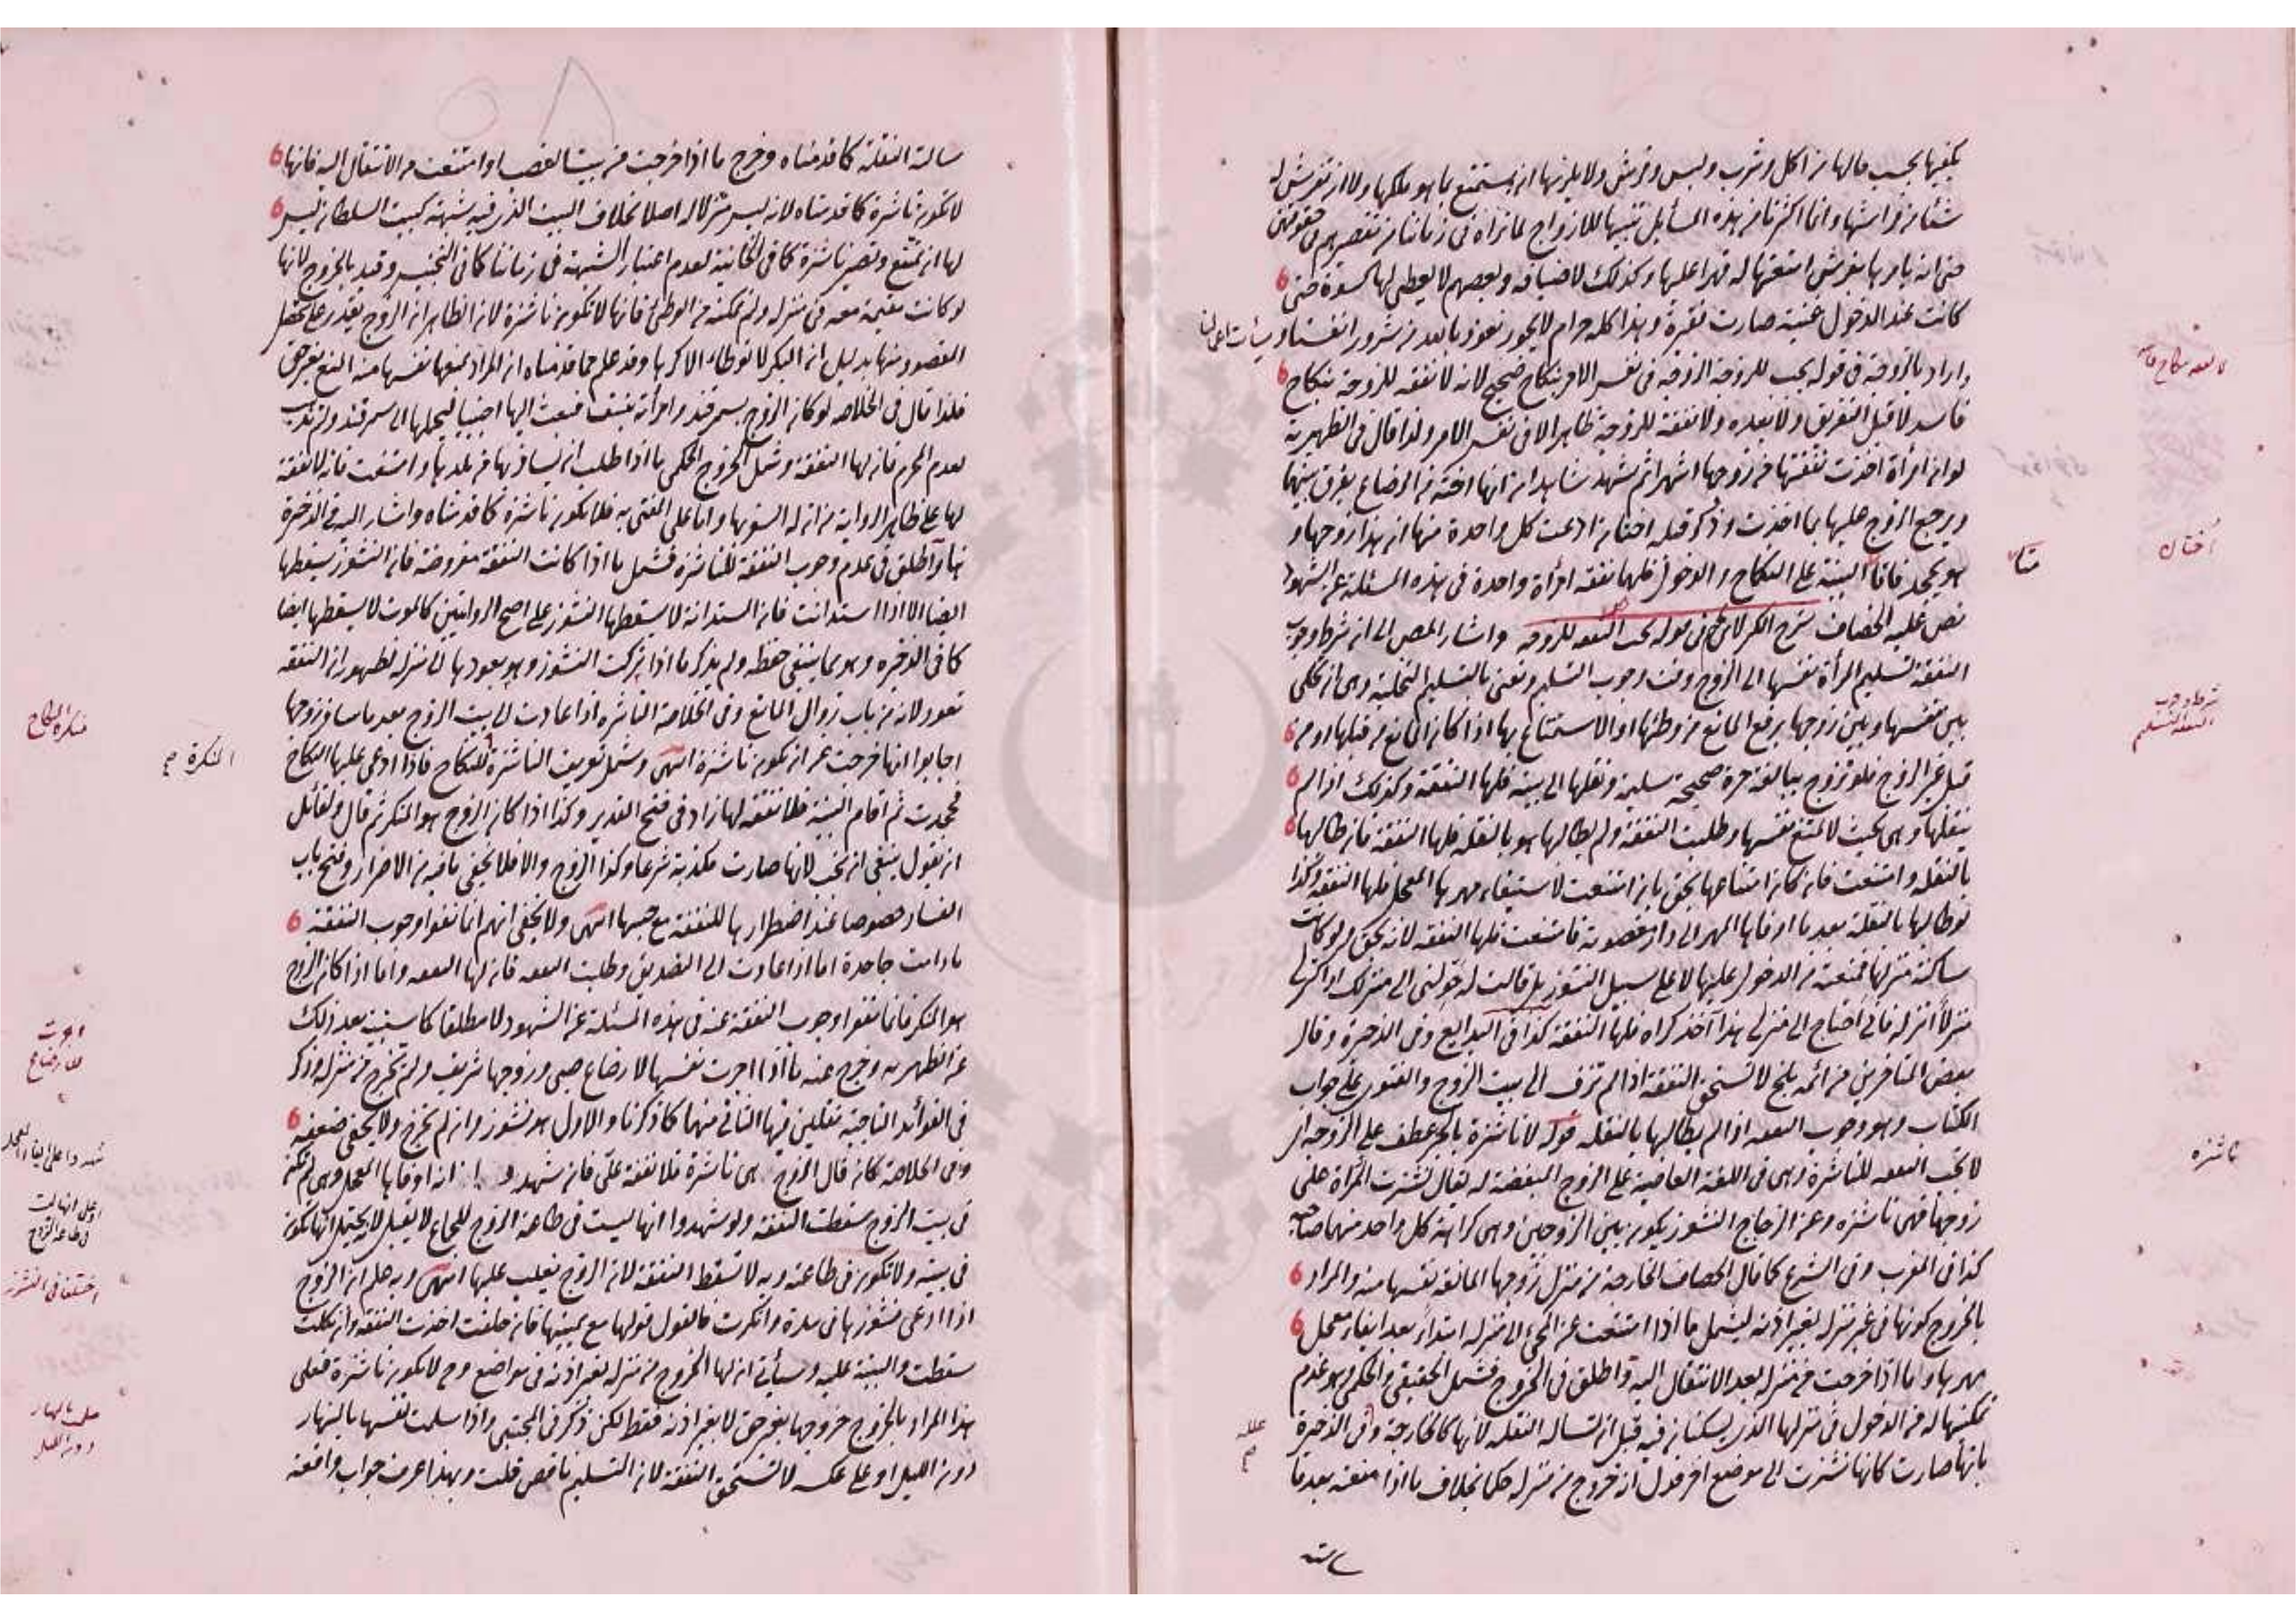 يكفيها بحسب حالها من اكل وشرب ولبس وفرش ولا يلزمها ان يستمتع بما هو ملكها ولا ان تفرش له
شئا من فراشها وانما اكثرنا من هذه المسائل تنبيها للازواج لما نراه في زماننا من تقصيرهم في حقوقهن
حتى انه يامرها بفرش امتعتها له قهرا عليها وكذلك لاضيافه وبعضهم لا يعطى لها كسوة حتى
كانت عند الدخول غنية صارت فقيرة وهذا كله حرام لا يجوز نعوذ بالله من شرور انفسنا وسيأت اعمالنا
واراد بالزوجة في قوله يجب للزوجة الزوجة في نفس الامر بنكاح صحيح لانه لا نفقة للزوجة بنكاح
فاسد لا قبل التفريق ولا بعده ولا نفقة للزوجية ظاهرا لا في نفس الامر ولذا قال في الظهيرية
لو ان امرأة اخذت نفقتها من زوجها اشهرا ثم شهد شاهدان انها اخته من الرضاع يفرق بينهما
ويرجع الزوج عليها بما اخذت وذكر قبله اختان ادعت كل واحدة منهما ان هذا زوجها و
هو يجحد فاقاما البينة على النكاح والدخول فلهما نفقة امرأة واحدة في هذه المسئلة عن الشهود
نص عليه الخصاف شرح الكنز لابن نجيم في قوله تجب النفقة للزوجة واشار المص الى ان شرط وجوب
النفقة تسليم المرأة نفسها الى الزوج وقت وجوب التسليم ونعني بالتسليم التخلية وهى ان تخلي
بين نفسها وبين زوجها برفع المانع من وطئها او الاستمتاع بها اذا كان المانع من قبلها او من
قبل غير الزوج فلو تزوج ببالغة حرة صحيحة سليمة ونقلها الى بيته فلها النفقة وكذلك اذا لم
ينقلها وهى بحيث لا تمنع نفسها وطلبت النفقة ولم يطالبها هو بالنقلة فلها النفقة فان طالبها
بالنقلة وامتنعت فان كان امتناعها بحق بان امتنعت لاستيفاء مهرها المعجل فلها النفقة وكذا
لو طالبها بالنقلة بعد ما اوفاها المهر الى دار مغصوبة فامتنعت فلها النفقة لانه بحق ولو كانت
ساكنة منزلها فمنعته من الدخول عليها لا على سبيل النشوز بل قالت له حولني الى منزلك او اكتر لى
منزلا انزله فاني احتاج الى منزلي هذا آخذ كراه فلها النفقة كذا في البدايع وفى الذخيرة وقال
بعض المتاخرين من ائمة بلخ لا تستحق النفقة اذا لم تزف الى بيت الزوج والفتوى على جواب
الكتاب وهو وجوب النفقة اذا لم يطالبها بالنقلة قوله لا ناشزة بالجر عطف على الزوجة اى
لا تجب النفقة للناشزة وهى فى اللغة العاصية على الزوج المبغضة له يقال نشزت المرأة على
زوجها فهى ناشزة وعن الزجاج النشوز يكون بين الزوجين وهى كراهة كل واحد منهما صاحبه
كذا في المغرب وفى الشرع كما قال الخصاف الخارجة من منزل زوجها المانعة نفسها منه والمراد
بالخروج كونها في غير منزله بغير اذنه ليشمل ما اذا امتنعت عن المجئ الى منزله ابتداء بعد ايفاء معجل
مهرها واما اذا خرجت من منزله بعد الانتقال اليه واطلق في الخروج فشمل الحقيقي والحكمي وهو عدم
تمكينها له من الدخول في منزلها الذى يسكنان فيه قبل ان تساله النقلة لانها كالخارجة وفى الذخيرة
بانها صارت كانها نشزت الى موضع اخر فدل ان خروج من منزله حكما بخلاف ما اذا منعته بعد ما
لا نفقة بنكاح فاسد
اختان
شرط وجوب
النفقة التسليم
ناشزه
سالته النقلة كما قدمناه وخرج ما اذا خرجت من بيت الغصب او امتنعت من الانتقال اليه فانها
لا تكون ناشزة كما قدمناه لانه ليس منزلا له اصلا بخلاف البيت الذى فيه شبهة كبيت السلطان ليس
لها ان تمتنع وتصير ناشزة كما في الخانية لعدم اعتبار الشبهة في زماننا كما فى التجنيس وقيد بالخروج لانها
لو كانت مقيمة معه في منزله ولم تمكنه من الوطئ فانها لا تكون ناشزة لان الظاهر ان الزوج يقدر على تحصيل
المقصود منها بدليل ان البكر لا توطاء الا كرها وقد علم مما قدمناه ان المراد بمنعها نفسها منه المنع بغير حق
فلذا قال في الخلاصة لو كان الزوج بسمرقند وامرأته بنسف فبعث اليها اجنبيا ليحملها الى سمرقند ولم تذهب
لعدم المحرم فان لها النفقة وشمل الخروج الحكمي ما اذا طلب ان يسافر بها من بلدها وامتنعت فانه لا نفقة
لها على ظاهر الرواية من ان له السفر بها واما على المفتى به فلا تكون ناشزة كما قدمناه واشار اليه في الذخيرة
هنا واطلق في عدم وجوب النفقة للناشزة فشمل ما اذا كانت النفقة مفروضة فان النشوز يسقطها
ايضا الا اذا استدانت فان المستدانة لا يسقطها النشوز على اصح الروايتين كالموت لا يسقطها ايضا
كما في الذخيرة وهو مما ينبغى حفظه ولم يذكر ما اذا تركت النشوز وهو بعودها الى منزله لظهور ان النفقة
تعود لانه من باب زوال المانع وفى الخلاصة الناشزة اذا عادت الى بيت الزوج بعد ما سافر زوجها
اجابوا انها خرجت عن ان تكون ناشزة انتهى وشمل تعريف الناشزة للنكاح فاذا ادعى عليها النكاح
المنكرة صح
فجحدت ثم اقام البينة فلا نفقة لها زاد فى فتح القدير وكذا اذا كان الزوج هو المنكر ثم قال ولقائل
ان يقول ينبغى ان تجب لانها صارت مكذبة شرعا وكذا الزوج والا فلا يخفى ما فيه من الاضرار وفتح باب
الفساد خصوصا عند اضطرارها للنفقة مع حبسها انتهى ولا يخفى انهم انما نفوا وجوب النفقة
مادامت جاحدة اما اذا عادت الى التصديق وطلبت النفقة فان لها النفقة واما اذا كان الزوج
هو المنكر فانما نفوا وجوب النفقة عنه فى هذه المسئلة عن الشهود لا مطلقا كما سنبينه بعد ذلك
عن الظهيرية وخرج عنه ما اذا اجرت نفسها لارضاع صبى وزوجها شريف ولم تخرج من منزله وذكر
فى الفوائد التاجية نقلين فيها الثاني منهما كما ذكرنا والاول هو نشوز وان لم تخرج ولا يخفى ضعفه
وفى الخلاصة كان قال الزوج هى ناشزة فلا نفقة على فان شهدوا انه اوفاها المعجل وهى لم تكن
فى بيت الزوج سقطت النفقة ولو شهدوا انها ليست في طاعة الزوج للجماع لا يقبل لانه يحتمل انها تكون
في بيته ولا تكون فى طاعته وبه لا تسقط النفقة لان الزوج يغلب عليها انتهى وبه علم ان الزوج
اذا ادعى نشوزها في مدة وانكرت فالقول قولها مع يمينها فان حلفت اخذت النفقة وان نكلت
سقطت والبينة عليه وسيأتي ان لها الخروج من منزله بغير اذنه في مواضع وح لا تكون ناشزة فعلى
هذا المراد بالخروج خروجها بغير حق لا بغير اذنه فقط لكن ذكر فى المجتبى واذا سلمت نفسها بالنهار
دون الليل او على عكسه لا تستحق النفقة لان التسليم ناقص قلت وبهذا عرف جواب واقعة
منكرة النكاح
اجرت
للارضاع
شهدوا على ايفاء المعجل
وعلى انها ليست
في طاعة الزوج
اختلفا في النشوز
سلمت بالنهار
دون الليل